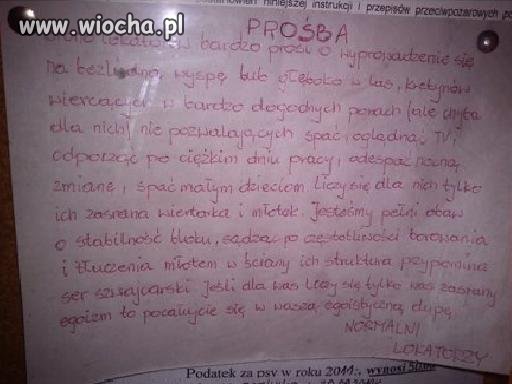 www.wiocha.pl
niniejszej instrukcji i przepisów przeciwpożarowych
PROŚBA
bardzo prosi o wyprowadzenie się
na bezludną wyspę lub głęboko w las, kretynów
wiercących w bardzo dogodnych porach (ale chyba
dla nich) nie pozwalających spać, oglądnąć TV,
odpocząć po ciężkim dniu pracy, odespać nocną
zmianę, spać małym dzieciom. Liczy się dla nich tylko
ich zasrana wiertarka i młotek. Jesteśmy pełni obaw
o stabilność bloku, sądząc po częstotliwości borowania
i tłuczenia młotem w ściany ich struktura przypomina
ser szwajcarski. Jeśli dla was liczy się tylko wasz zasrany
egoizm to pocałujcie się w waszą egoistyczną dupę.
NORMALNI
LOKATORZY
Podatek za psy w roku 2011r. wynosi